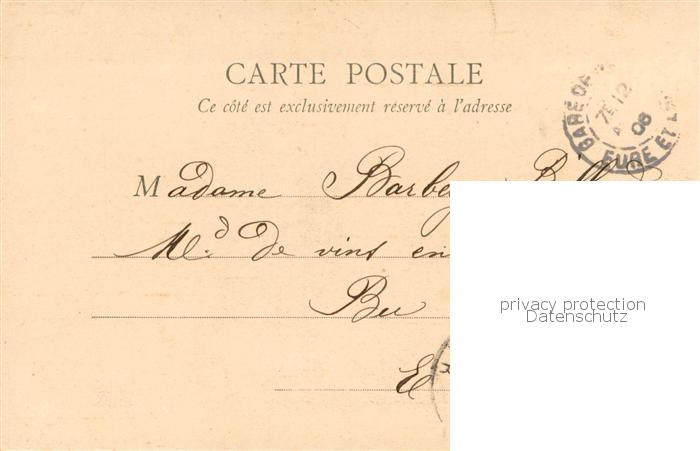 CARTE POSTALE
Ce côté est exclusivement réservé à l'adresse
GARE DE
7E 12
06
EURE ET L
Madame Barbe
Mde de vins en
Bu
privacy protection
Datenschutz